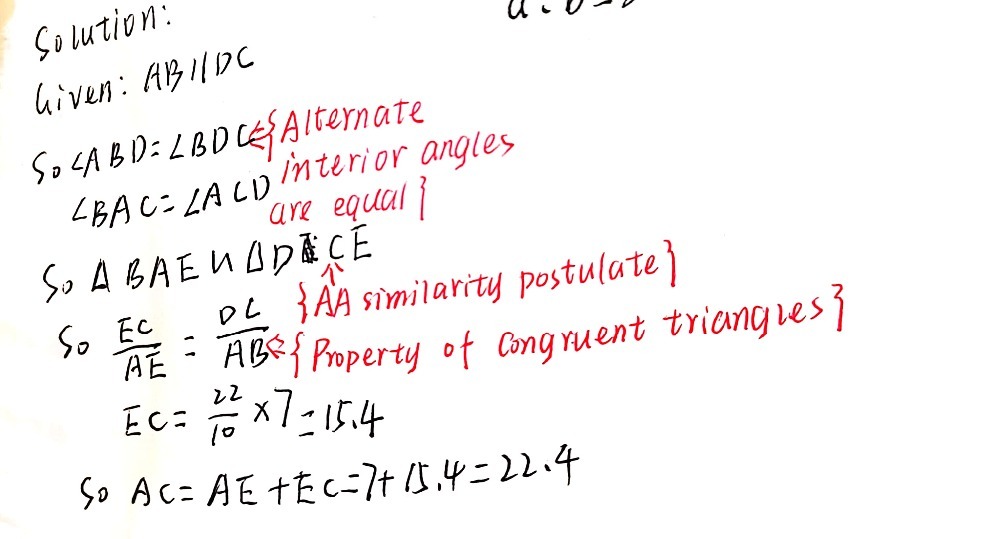 Solution:
Given: AB//DC
So ∠ABD=∠BDC⇐{Alternate
interior angles
∠BAC=∠ACD
are equal}
So ΔBAE ∽ ΔDCE
{AA similarity postulate}
So EC/AE = DC/AB ⇐{Property of congruent triangles}
EC= 22/10 ×7=15.4
So AC= AE+EC=7+15.4=22.4